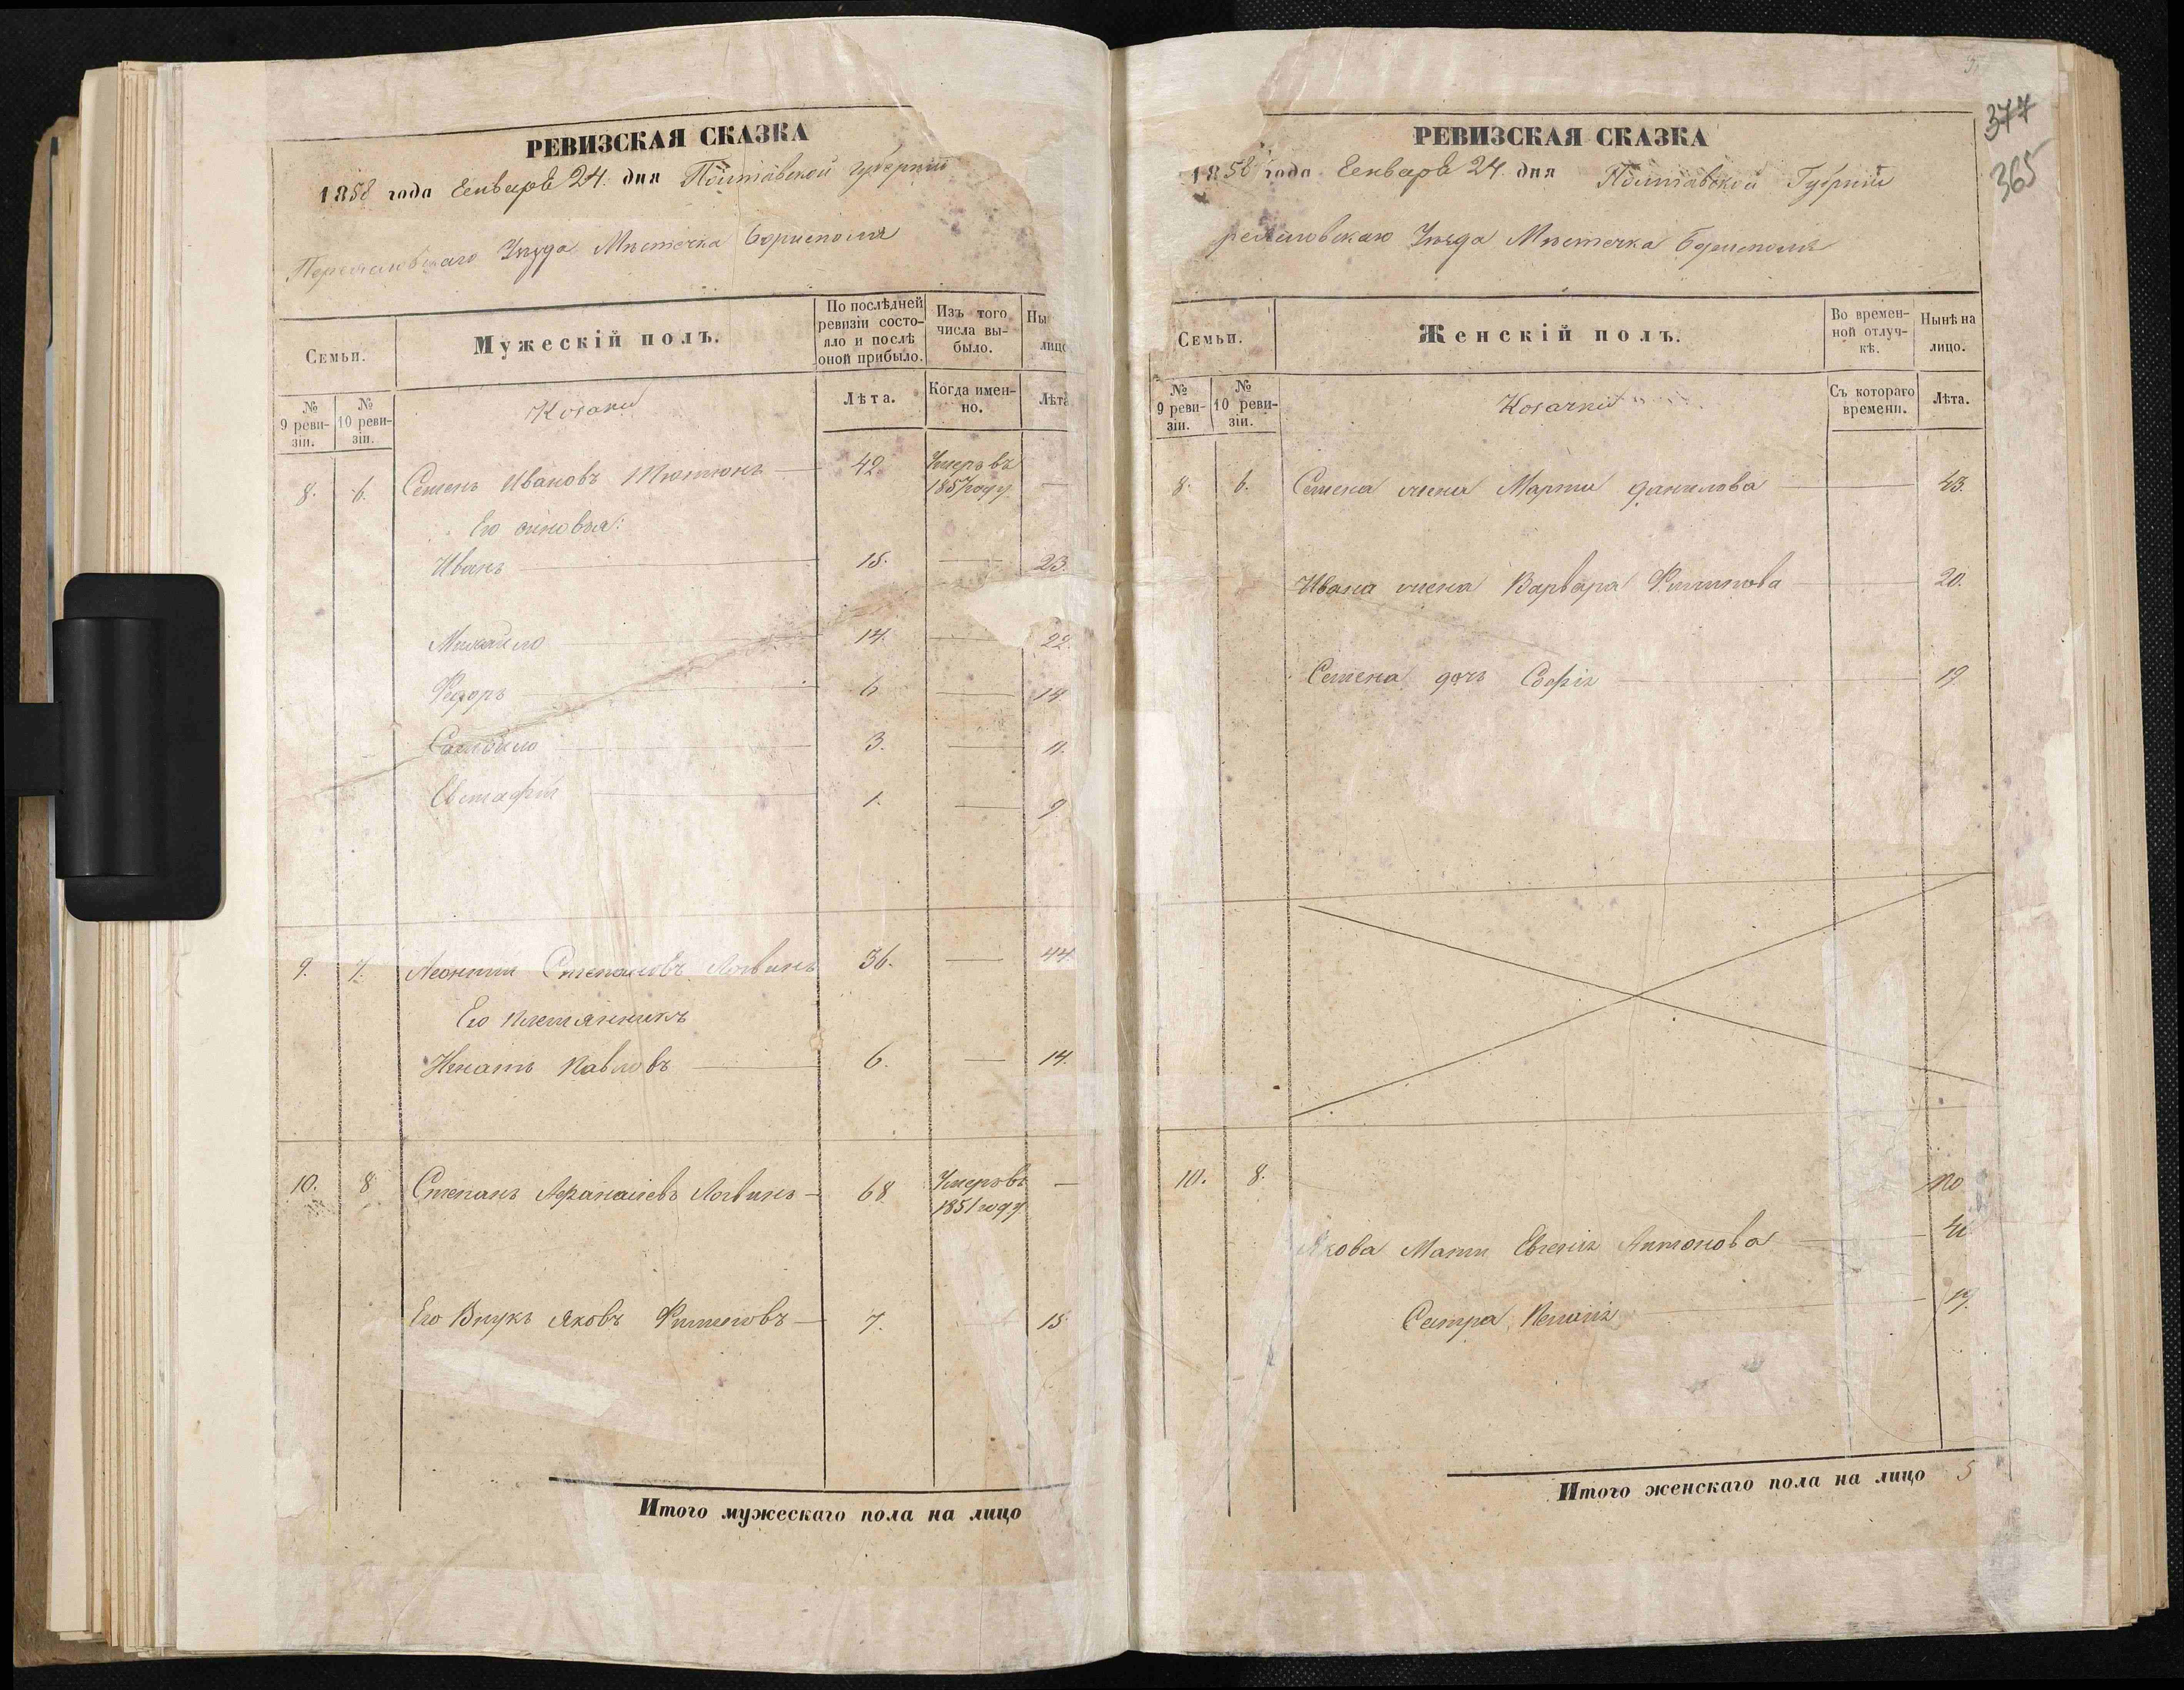 РЕВИЗСКАЯ СКАЗКА
1858 года Генваря 24. дня Полтавской губернии
Переяславскаго Уезда Мѣстечка Борисполя
Семьи.
Мужескій полъ.
По послѣдней ревизіи состо-
яло и послѣ
оной прибыло.
Изъ того
числа вы-
было.
Ны
лицо
№
9 реви-
зіи.
№
10 реви-
зіи.
Козаки
Лѣта.
Когда имен-
но.
Лѣта
8. 6. Семенъ Ивановъ Тютюнъ 42. Умеръ въ
1857 году —
Его сыновья:
Иванъ 15. — 23.
Михайло 14. — 22.
Федоръ 6. — 14
Самойло 3. — 11.
Евстафій 1. — 9
9. 7. Леонтий Степановъ Логвинъ 36. — 44.
Его племянникъ
Игнатъ Павловъ 6. — 14.
10. 8 Степанъ Афанасіевъ Логвинъ 68 Умеръ въ
1851 году —
Его Внукъ Яковъ 7. 15
Итого мужескаго пола на лицо
377
365
РЕВИЗСКАЯ СКАЗКА
1858 года Генваря 24. дня Полтавской Губрнии
реяславскаго Уезда Мѣстечка Борисполя
Семьи.
Женскій полъ.
Во времен-
ной отлуч-
кѣ.
Нынѣ на
лицо.
№
9 реви-
зіи.
№
10 реви-
зіи.
Козачки
Съ котораго
времени.
Лѣта.
8. 6. Семена жена Марта Данилова 43.
Ивана жена Варвара Филипова 20.
Семена дочь Софія 19.
10. 8.
Якова Мати Евгенія Антонова
Сестра
Итого женскаго пола на лицо 5